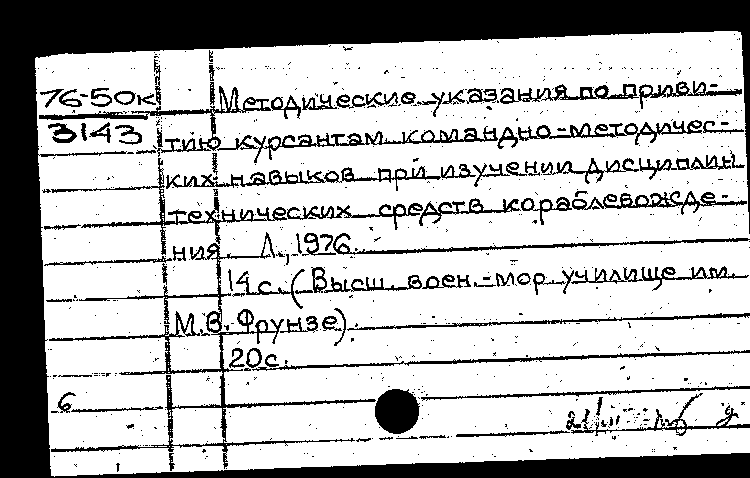 76-50к Методические указания по приви-
3143 тию курсантам командно-методичес-
ких навыков при изучении дисциплин
технических средств кораблевожде-
ния. Л., 1976.
14с. (Высш. воен.-мор. училище им.
М.В. Фрунзе).
20с.
6